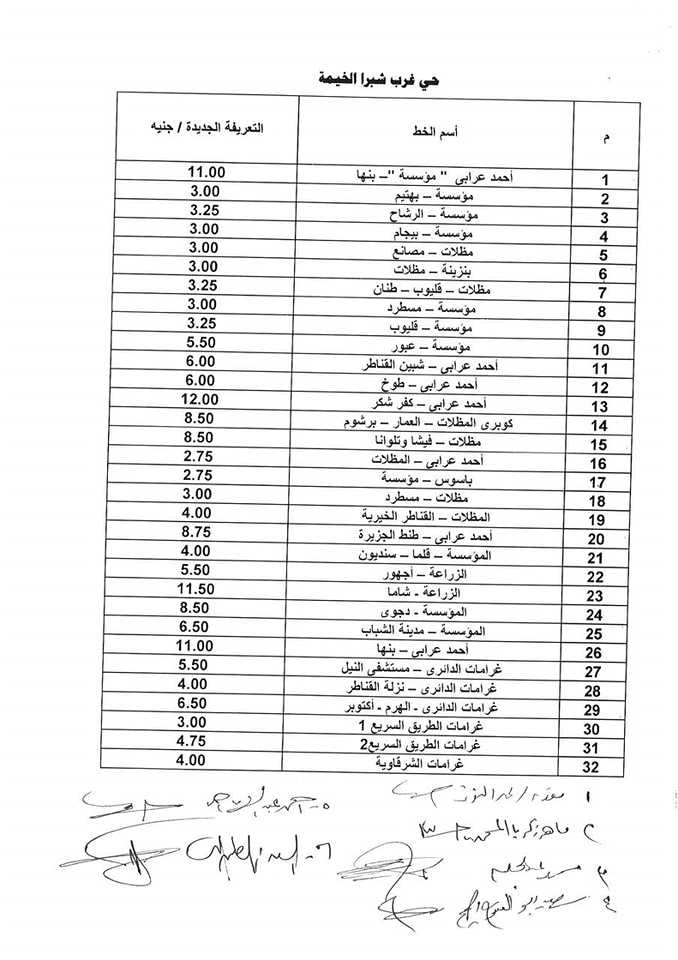 حي غرب شبرا الخيمة
م أسم الخط التعريفة الجديدة / جنيه
1 أحمد عرابي " مؤسسة "– بنها 11.00
2 مؤسسة – بهتيم 3.00
3 مؤسسة – الرشاح 3.25
4 مؤسسة – بيجام 3.00
5 مظلات – مصانع 3.00
6 بنزينة – مظلات 3.00
7 مظلات – قليوب – طنان 3.25
8 مؤسسة – مسطرد 3.00
9 مؤسسة – قليوب 3.25
10 مؤسسة – عبور 5.50
11 أحمد عرابي – شبين القناطر 6.00
12 أحمد عرابي – طوخ 6.00
13 أحمد عرابي – كفر شكر 12.00
14 كوبرى المظلات – العمار – برشوم 8.50
15 مظلات – فيشا وتلوانا 8.50
16 أحمد عرابي – المظلات 2.75
17 باسوس – مؤسسة 2.75
18 مظلات – مسطرد 3.00
19 المظلات – القناطر الخيرية 4.00
20 أحمد عرابي – طنط الجزيرة 8.75
21 المؤسسة – قلما – سنديون 4.00
22 الزراعة – أجهور 5.50
23 الزراعة - شاما 11.50
24 المؤسسة - دجوى 8.50
25 المؤسسة – مدينة الشباب 6.50
26 أحمد عرابي – بنها 11.00
27 غرامات الدائرى – مستشفى النيل 5.50
28 غرامات الدائرى – نزلة القناطر 4.00
29 غرامات الدائرى - الهرم - أكتوبر 6.50
30 غرامات الطريق السريع 1 3.00
31 غرامات الطريق السريع2 4.75
32 غرامات الشرقاوية 4.00
١
٢
٣
٤
٥-
٦-